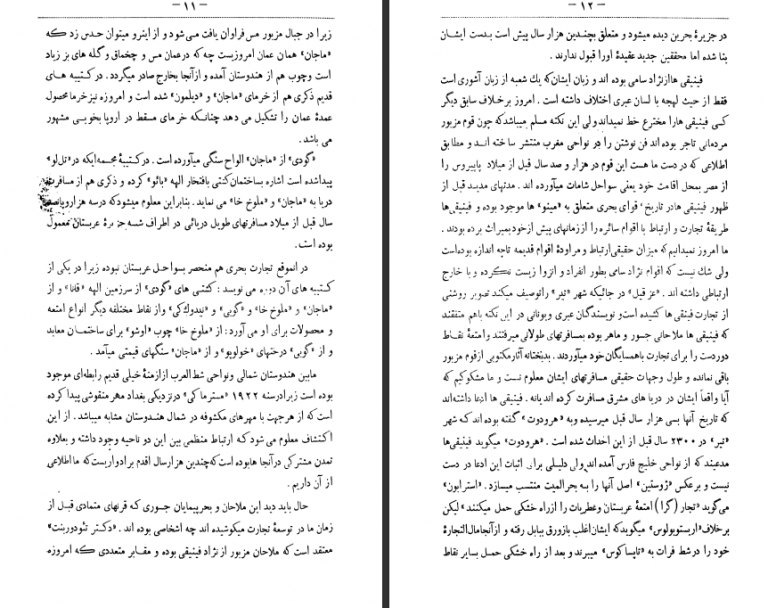 — ۱۱ —
زیرا در جبال مزبور مس فراوان یافت می شود و از اینرو میتوان حدس زد که
«ماجان» همان عمان امروزیست چه که درعمان مس و چخماق و گله های بز زیاد
است وچوب هم از هندوستان آمده و ازآنجا بخارج صادر میگردد . در کتیبه های
قدیم ذکری هم از خرمای «ماجان» و «دیلمون» شده است و امروزه نیز خرما محصول
عمدهٔ عمان را تشکیل می دهد چنانکه خرمای مسقط در اروپا بخوبی مشهور
می باشد .
«گودی» از «ماجان» الواح سنگی میآورده است . در کتیبهٔ مجسمه ایکه در «تل لو»
پیداشده است اشاره بساختمان کشتی بافتخار الهه «بائو» کرده و ذکری هم از مسافرت
دریا به «ماجان» و «ملوخ خا» می نماید . بنابراین معلوم میشود که درسه هزار و پانصد
سال قبل از میلاد مسافرتهای طویل دریائی در اطراف شبه جزیرهٔ عربستان معمول
بوده است .
در آنموقع تجارت بحری هم منحصر بسواحل عربستان نبوده زیرا در یکی از
کتیبه های آن دوره می نویسد : کشتی های «گودی» از سرزمین الهه «فانا» و از
«ماجان» و «ملوخ خا» و «گوبی» و «نیدوك کی» و از نقاط مختلفه دیگر انواع امتعه
و محصولات برای او می آورد : از «ملوخ خا» چوب «اوشو» برای ساختمان معابد
و از «گوبی» درختهای «خولوپو» و از «ماجان» سنگهای قیمتی میآمد .
مابین هندوستان شمالی ونواحی شط العرب ازازمنهٔ خیلی قدیم رابطه ای موجود
بوده است زیرا درسنه ۱۹۲۲ «مسترماکی» در نزدیکی بغداد مهر منقوشی پیدا کرده
است که از هر جهت با مهرهای مکشوفه در شمال هندوستان مشابه میباشد . از این
اکتشاف معلوم می شود که ارتباط منظمی بین این دو ناحیه وجود داشته و بعلاوه
تمدن مشترکی در آنجا ها بوده است که چندین هزارسال اقدم بر ادواریست که ما اطلاعی
از آن داریم .
حال باید دید این ملاحان و بحرپیمایان جسوری که قرنهای متمادی قبل از
زمان ما در توسعهٔ تجارت میکوشیده اند چه اشخاصی بوده اند . «دکتر تئودوربنت»
معتقد است که ملاحان مزبور از نژاد فینیقی بوده و مقابر متعددی که امروزه
— ۱۲ —
در جزیرهٔ بحرین دیده میشود و متعلق بچندین هزار سال پیش است بدست ایشان
بنا شده اما محققین جدید عقیدهٔ اورا قبول ندارند .
فینیقی ها ازنژاد سامی بوده اند و زبان ایشان که یك شعبه از زبان آشوری است
فقط از حیث لهجه با لسان عبری اختلاف داشته است . امروز بر خلاف سابق دیگر
کسی فینیقی هارا مخترع خط نمیداند ولی این نکته مسلم میباشد که چون قوم مزبور
مردمانی تاجر بوده اند فن نوشتن را در نواحی مغرب منتشر ساخته اند و مطابق
اطلاعی که در دست ما هست این قوم در هزار و صد سال قبل از میلاد پاپیروس را
از مصر بمحل اقامت خود یعنی سواحل شامات میآورده اند . مدتهای مدید قبل از
ظهور فینیقی ها در تاریخ قوای بحری متعلق به «مینو» ها موجود بوده و فینیقی ها
طریقهٔ تجارت و ارتباط با اقوام سائره را اززمانهای پیش ازخود بمیراث برده بودند .
ما امروز نمیدانیم که میزان حقیقی ارتباط و مراودهٔ اقوام قدیمه تاچه اندازه بوده است
ولی شك نیست که اقوام نژاد سامی بطور انفراد و انزوا زیست نکرده و با خارج
ارتباطی داشته اند . «عزقیل» در جائیکه شهر «تیر» راتوصیف میکند تصویر روشنی
از تجارت فینقی ها کشیده است و نویسندگان عبری ویونانی در این نکته باهم متفقند
که فینیقی ها ملاحانی جسور و ماهر بوده بمسافرتهای طولانی میرفتند و امتعهٔ نقاط
دوردست را برای تجارت باهمسایگان خود میآوردند . بدبختانه آثار مکتوبی ازقوم مزبور
باقی نمانده و طول وجهات حقیقی مسافرتهای ایشان معلوم نیست و ما مشکوکیم که
آیا واقعاً ایشان در دریا های مشرق مسافرت کرده اند یانه . فینیقی ها ادعا داشته‌اند
که تاریخ آنها بسی هزار سال قبل میرسیده و به «هرودوت» گفته بوده اند که شهر
«تیر» در ۲۳۰۰ سال قبل از این احداث شده است . «هرودوت» میگوید فینیقی ها
مدعیند که از نواحی خلیج فارس آمده اند ولی دلیلی برای اثبات این ادعا در دست
نیست و برعکس «ژوستین» اصل آنها را به بحرالمیت منتسب میسازد . «استرابون»
می گوید «تجار (گرا) امتعهٔ عربستان وعطریات را ازراه خشکی حمل میکنند» لیکن
برخلاف «اریستوبولوس» میگوید که ایشان اغلب بازورق ببابل رفته و ازآنجا مال التجارهٔ
خود را در شط فرات به «تاپساکوس» میبرند و بعد از راه خشکی حمل بسایر نقاط